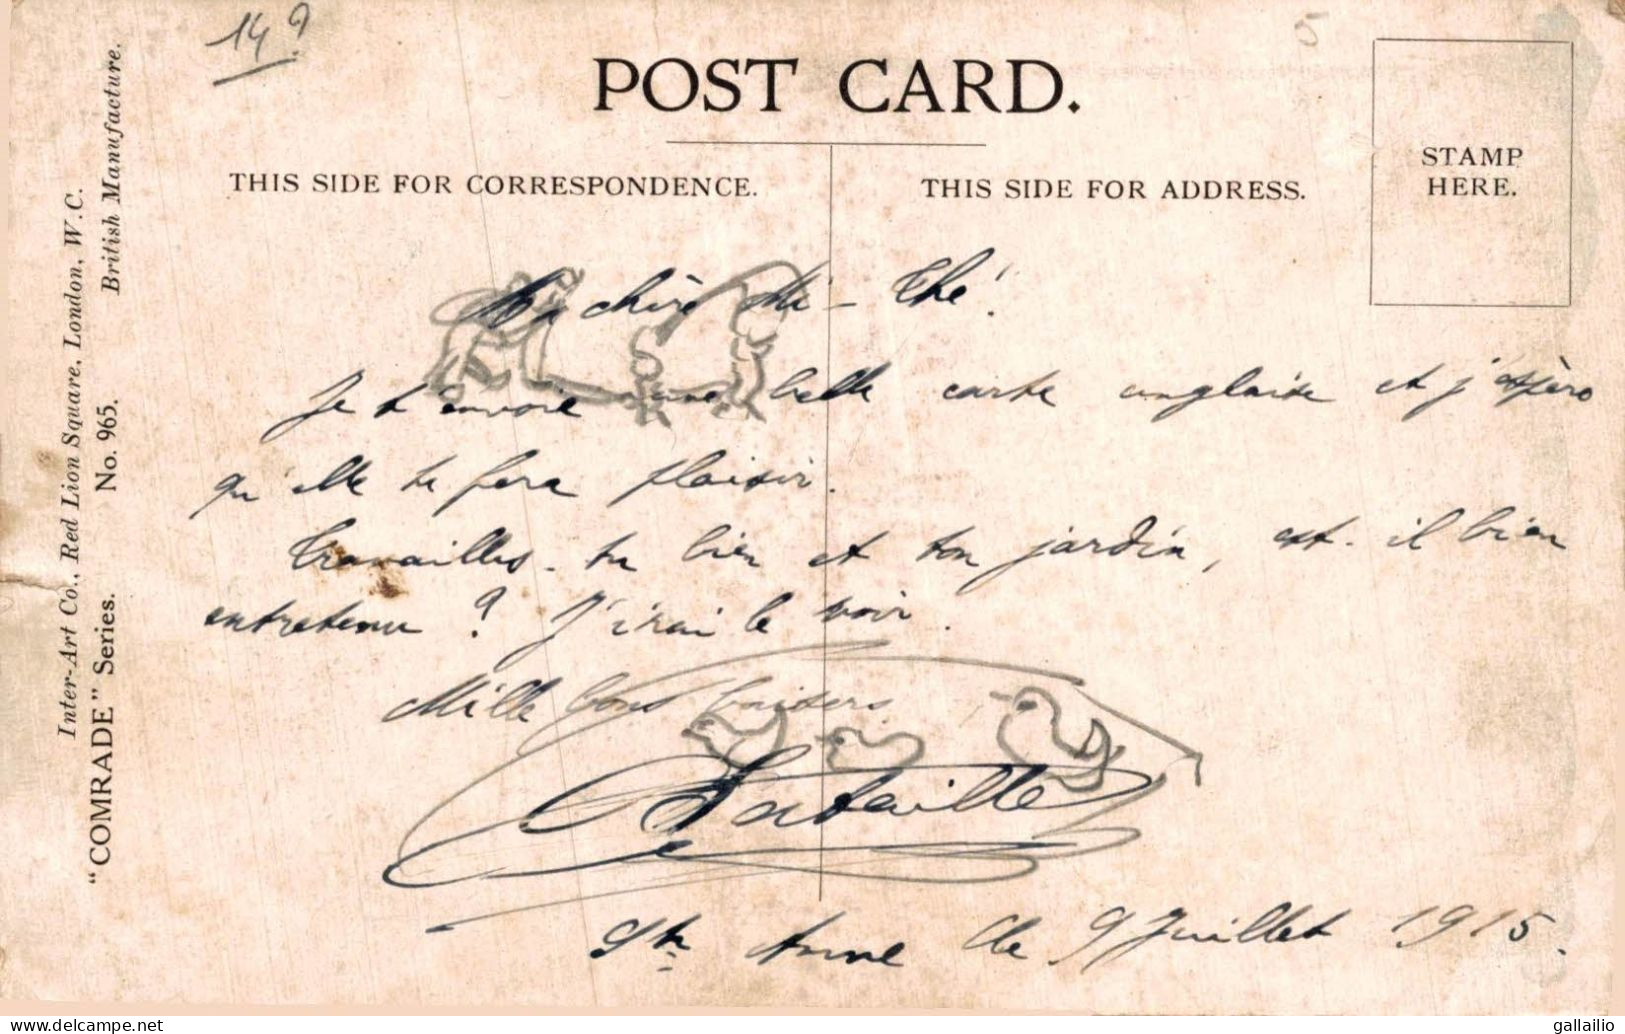 14 9
5
POST CARD.
THIS SIDE FOR CORRESPONDENCE.
THIS SIDE FOR ADDRESS.
STAMP
HERE.
Inter-Art Co., Red Lion Square, London, W.C.
British Manufacture.
"COMRADE" Series. No. 965.
Ma chère Mi-Thé!
Je t'envoie une belle carte anglaise et j'espère
qu'elle te fera plaisir.
Travailles-tu bien et ton jardin, est-il bien
entretenu ? J'irai le voir.
Mille bons baisers
Bataille
Ste Anne le 9 Juillet 1915.
delcampe.net
gallailio